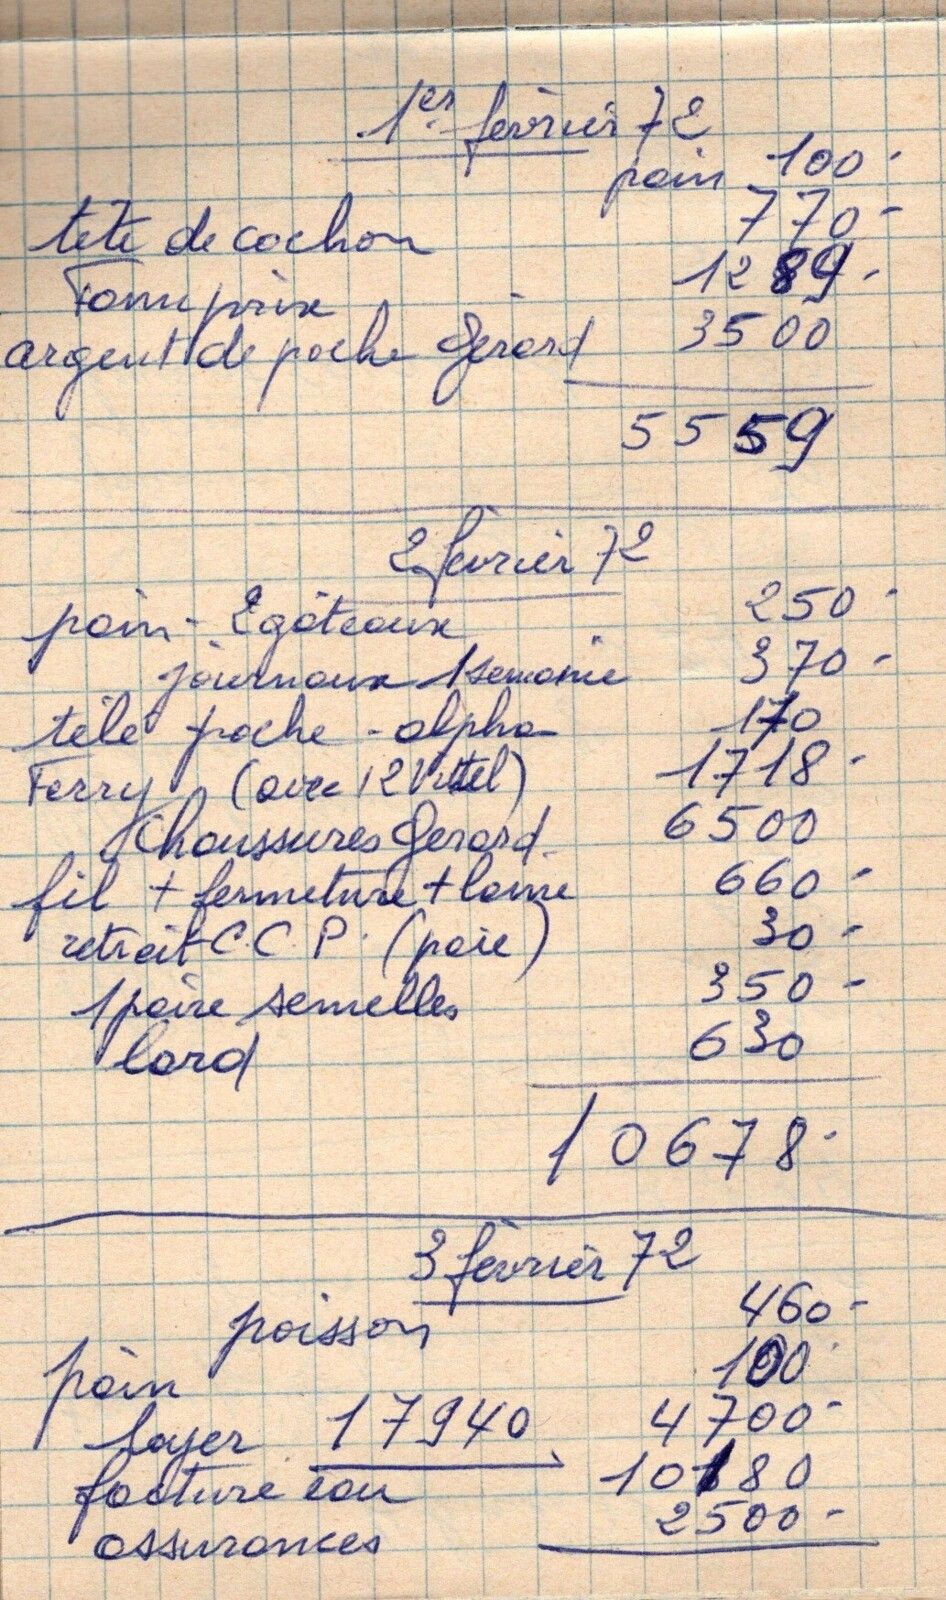 1er février 72
pain 100-
tête de cochon 770-
Fami prix 1289-
argent de poche Gérard 3500
5559
2 février 72
pain - 2 gâteaux 250-
journaux 1 semaine 370-
télé poche - alpha 170
Ferry (avec 12 Vittel) 1718-
Chaussures Gérard 6500
fil + fermeture + laine 660-
retrait C.C.P. (paie) 30-
1 paire semelles 350-
lard 630
10678-
3 février 72
poisson 460-
pain 100
loyer 17940 4700-
facture eau 10180
assurances 2500-